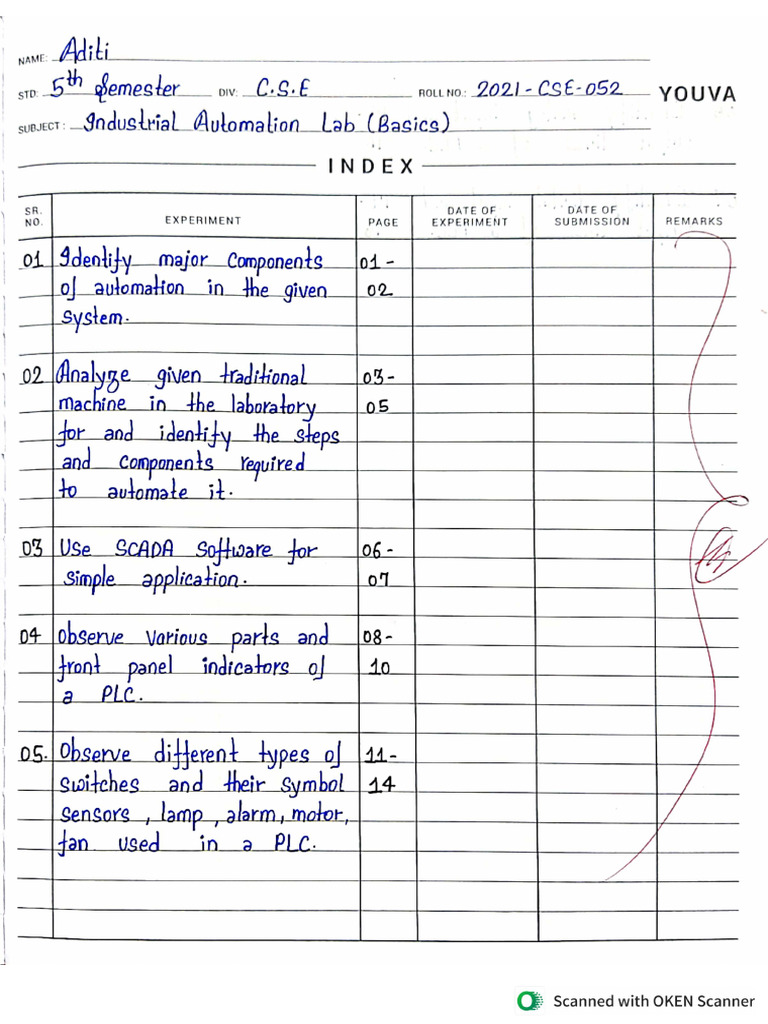 NAME: Aditi
STD: 5th Semester DIV: C.S.E ROLL NO.: 2021-CSE-052 YOUVA
SUBJECT: Industrial Automation Lab (Basics)
INDEX
SR. NO. EXPERIMENT PAGE DATE OF EXPERIMENT DATE OF SUBMISSION REMARKS
01 Identify major components 01-
of automation in the given 02
system.
02 Analyze given traditional 03-
machine in the laboratory 05
for and identify the steps
and components required
to automate it.
03 Use SCADA Software for 06-
simple application. 07
04 Observe various parts and 08-
front panel indicators of 10
a PLC.
05. Observe different types of 11-
switches and their symbol 14
sensors, lamp, alarm, motor,
fan used in a PLC.
Scanned with OKEN Scanner